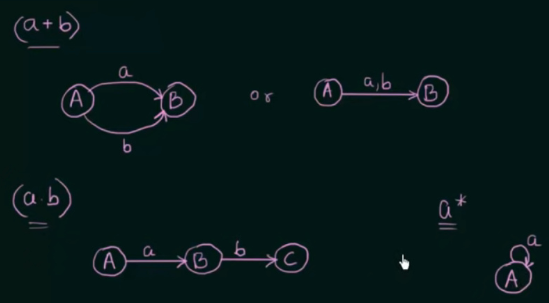 (a+b)
a
A B or A a,b B
b
(a·b)
a*
A a B b C
a
A